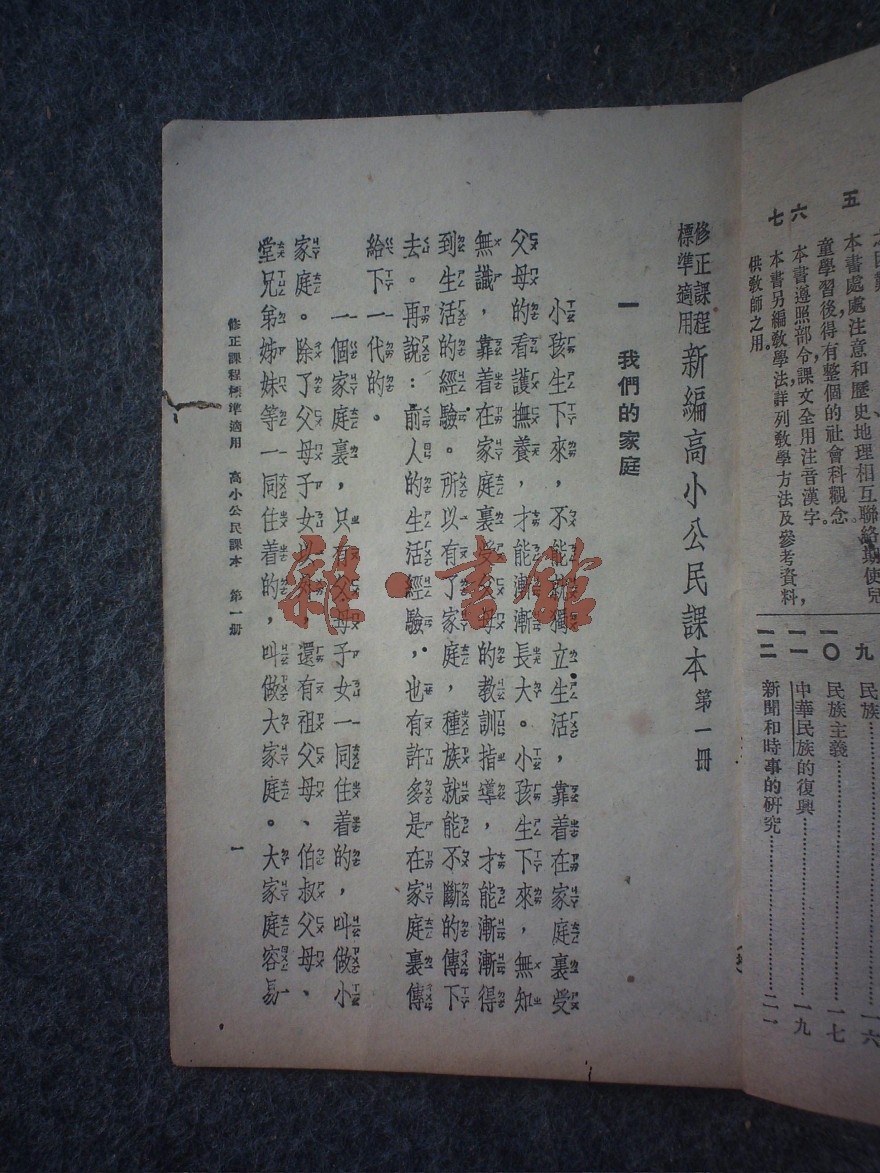 五 本書處處注意和歷史地理相互聯絡,期使兒
童學習後得有整個的社會科觀念。
六 本書遵照部令,課文全用注音漢字。
七 本書另編教學法,詳列教學方法及參考資料,
供教師之用。
九 民族……一六
一〇 民族主義……一七
一一 中華民族的復興……一九
一二 新聞和時事的研究……二一
修正課程
標準適用 新編高小公民課本 第一冊
一 我們的家庭
小孩生下來,不能就獨立生活,靠着在家庭裏受
父母的看護撫養,才能漸漸長大。小孩生下來,無知
無識,靠着在家庭裏受父母的教訓指導,才能漸漸得
到生活的經驗。所以有了家庭,種族就能不斷的傳下
去。再說:前人的生活經驗,也有許多是在家庭裏傳
給下一代的。
一個家庭裏,只有父母子女一同住着的,叫做小
家庭。除了父母子女以外,還有祖父母、伯叔父母、
堂兄弟姊妹等一同住着的,叫做大家庭。大家庭容易
修正課程標準適用 高小公民課本 第一册 一
雜·書館